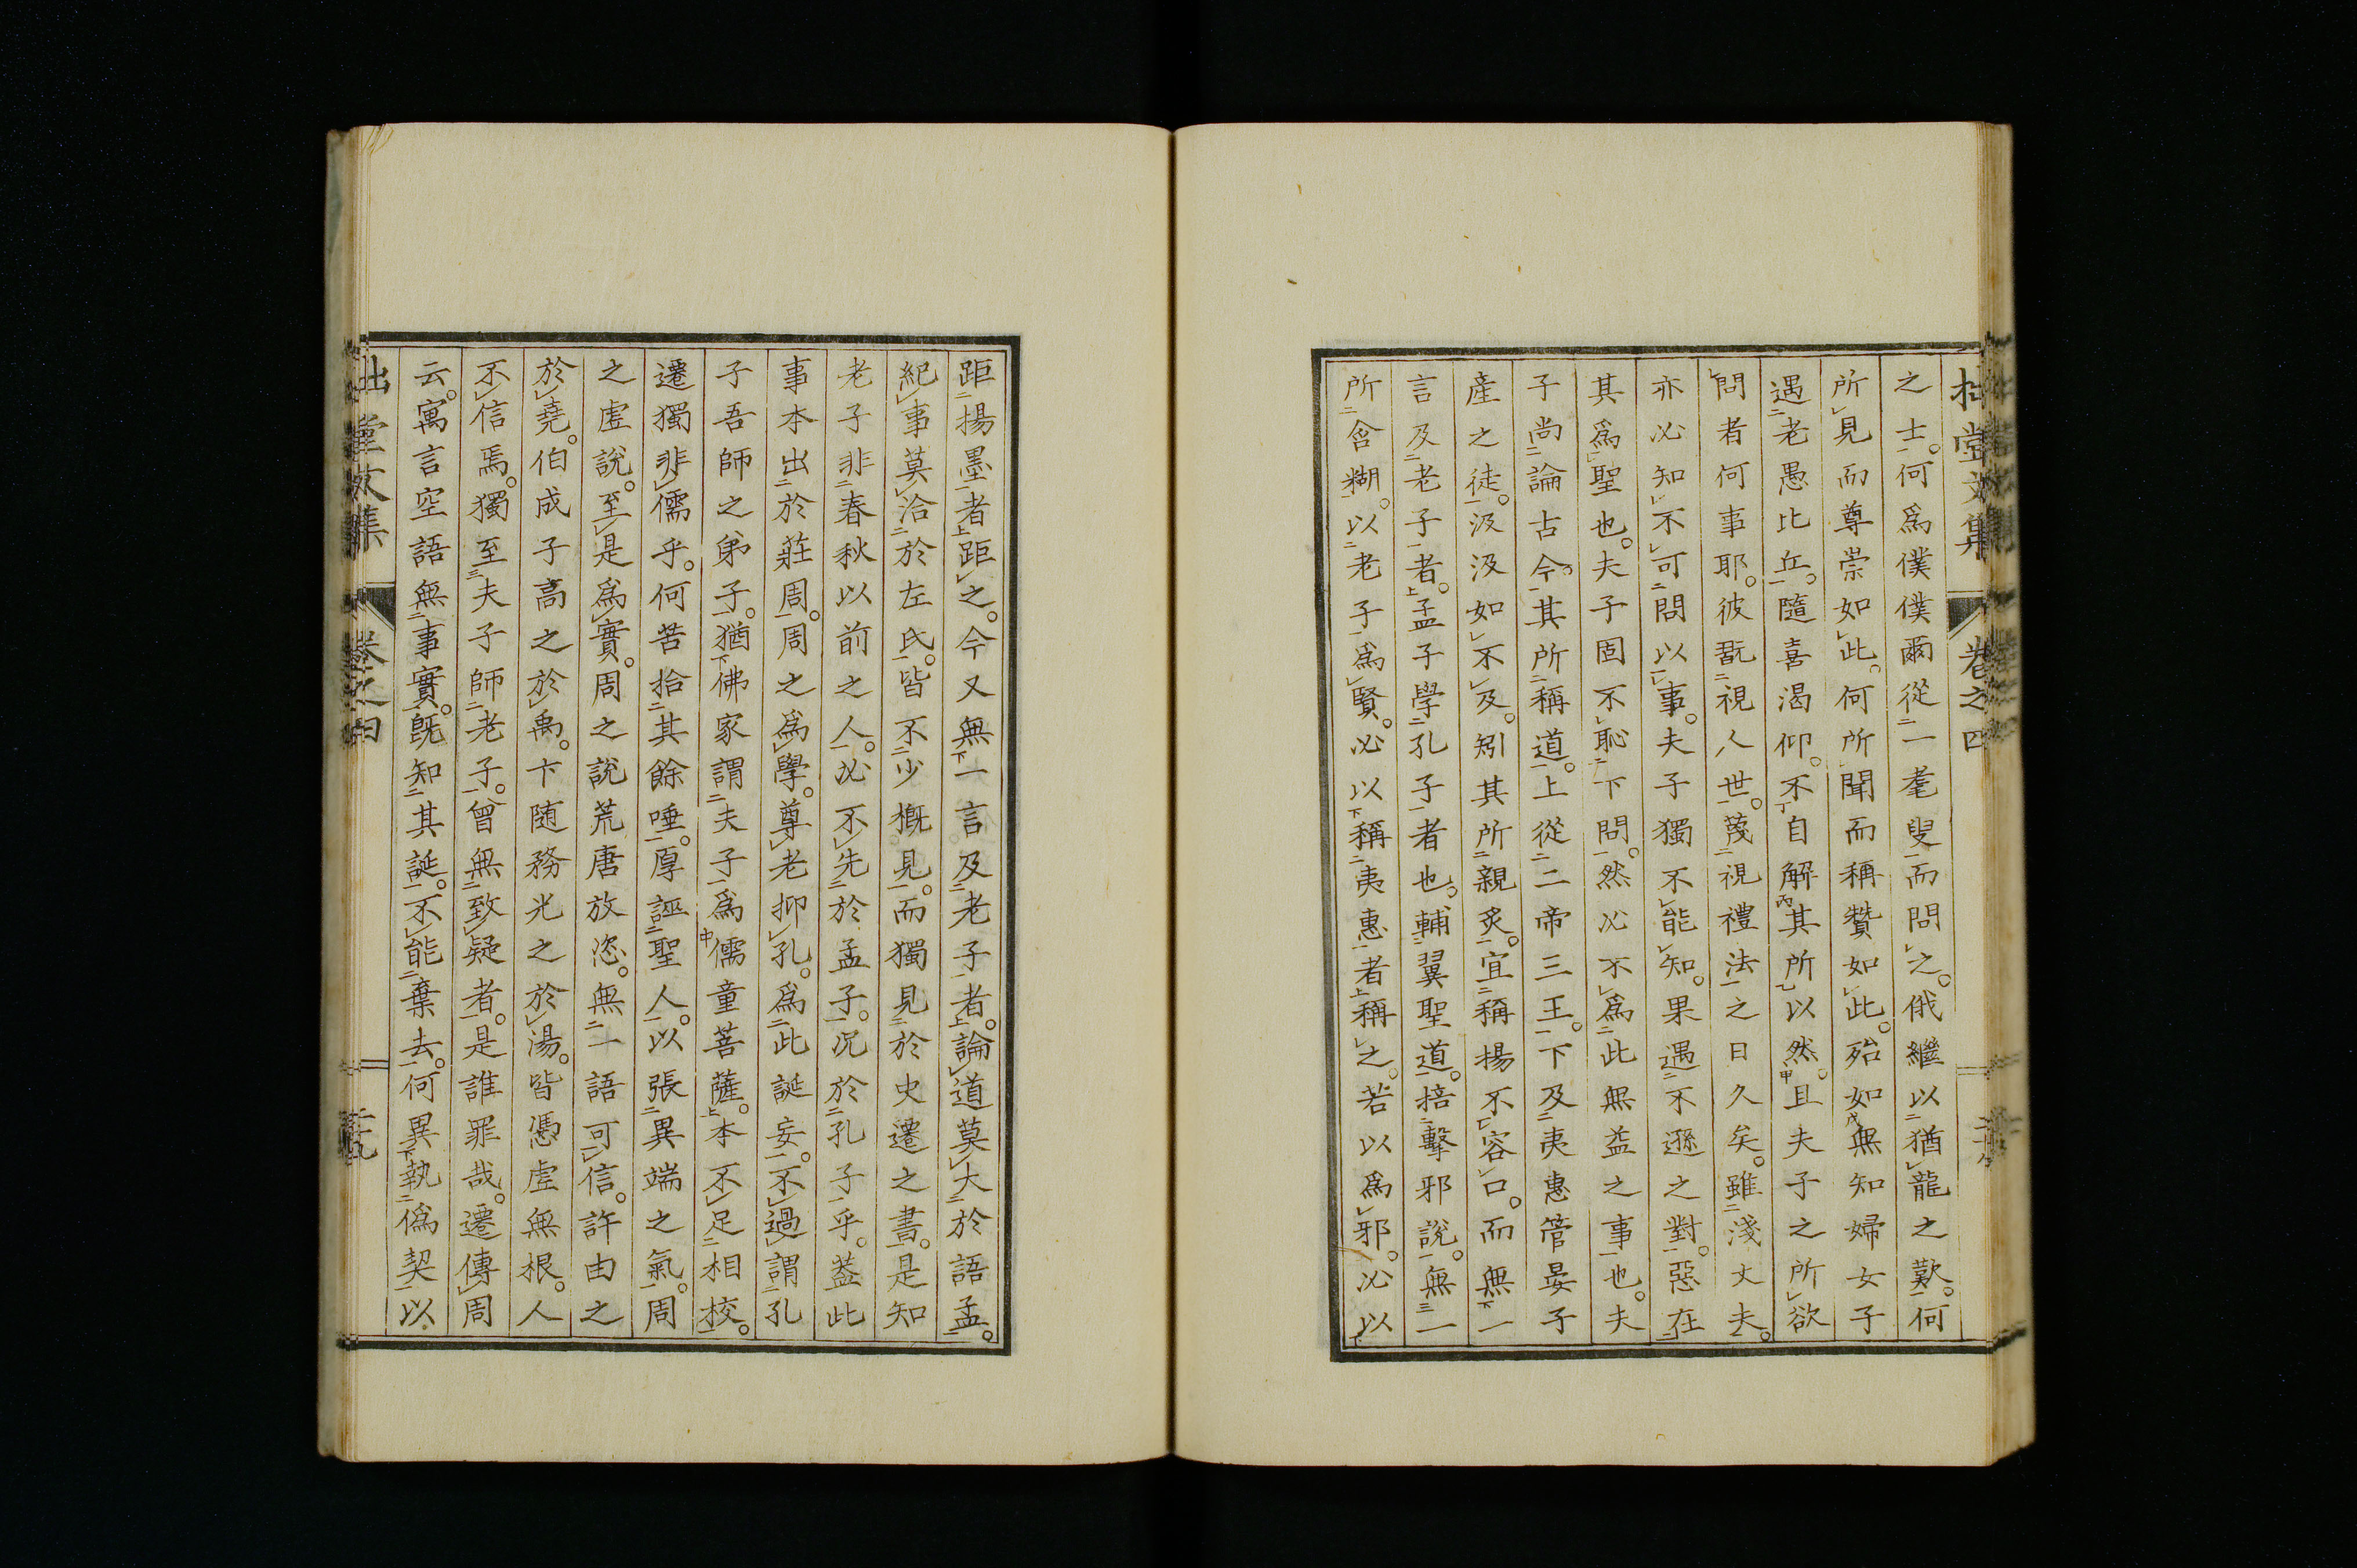 拙堂文集 卷之四
之士。何爲僕僕爾從一耄叟而問之。俄繼以猶龍之歎。何
所見而尊崇如此。何所聞而稱贊如此。殆如無知婦女子
遇老愚比丘。隨喜渴仰。不自解其所以然。且夫子之所欲
問者何事耶。彼翫視人世。蔑視禮法之日久矣。雖淺丈夫。
亦必知不可問以事。夫子獨不能知。果遇不遜之對。惡在
其爲聖也。夫子固不恥下問。然必不爲此無益之事也。夫
子尚論古今。其所稱道。上從二帝三王。下及夷惠管晏子
產之徒。汲汲如不及。矧其所親炙。宜稱揚不容口。而無一
言及老子者。孟子學孔子者也。輔翼聖道。掊擊邪說。無一
所含糊。以老子爲賢。必以稱夷惠者稱之。若以爲邪。必以
距揚墨者距之。今又無一言及老子者。論道莫大於語孟。
紀事莫洽於左氏。皆不少概見。而獨見於史遷之書。是知
老子非春秋以前之人。必不先於孟子。况於孔子乎。蓋此
事本出於莊周。周之爲學。尊老抑孔。爲此誕妄。不過謂孔
子吾師之弟子。猶佛家謂夫子爲儒童菩薩。本不足相校。
遷獨非儒乎。何苦拾其餘唾。厚誣聖人。以張異端之氣。周
之虛說。至是爲實。周之說荒唐放恣。無一語可信。許由之
於堯。伯成子高之於禹。卞随務光之於湯。皆憑虛無根。人
不信焉。獨至夫子師老子。曾無致疑者。是誰罪哉。遷傳周
云。寓言空語無事實。既知其誕。不能棄去。何異執僞契以
拙堂文集 卷之四